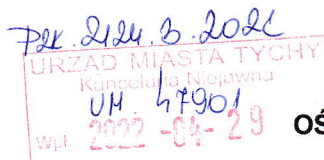 PZK.2124.3.2022
URZĄD MIASTA TYCHY
Kancelaria Niejawna
UM 47901
Wpł. 2022 -04- 29
OŚ